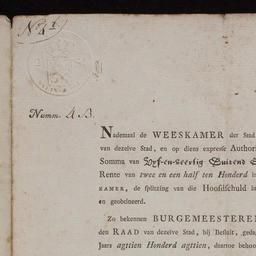 No. 41
Numm. 4 B.
Nademaal de WEESKAMER der Stad
van dezelve Stad, en op diens expresse Authori
Somma van Vyf-en-veertig Duizend G
Rente van twee en een half ten Honderd i
KAMER, de splitzing van die Hoofdschuld in
en geobtineerd.
Zo bekennen BURGEMEESTEREN
den RAAD van dezelve Stad, bij Besluit, geda
Jaars agttien Honderd agttien, daartoe behoo